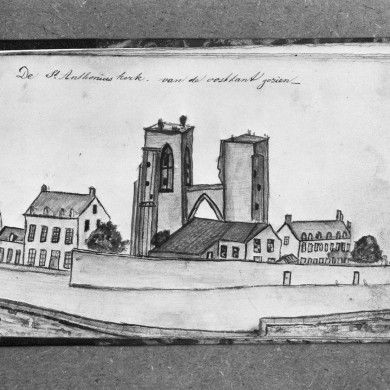 De St Anthonius kerk. van de oostkant gezien_